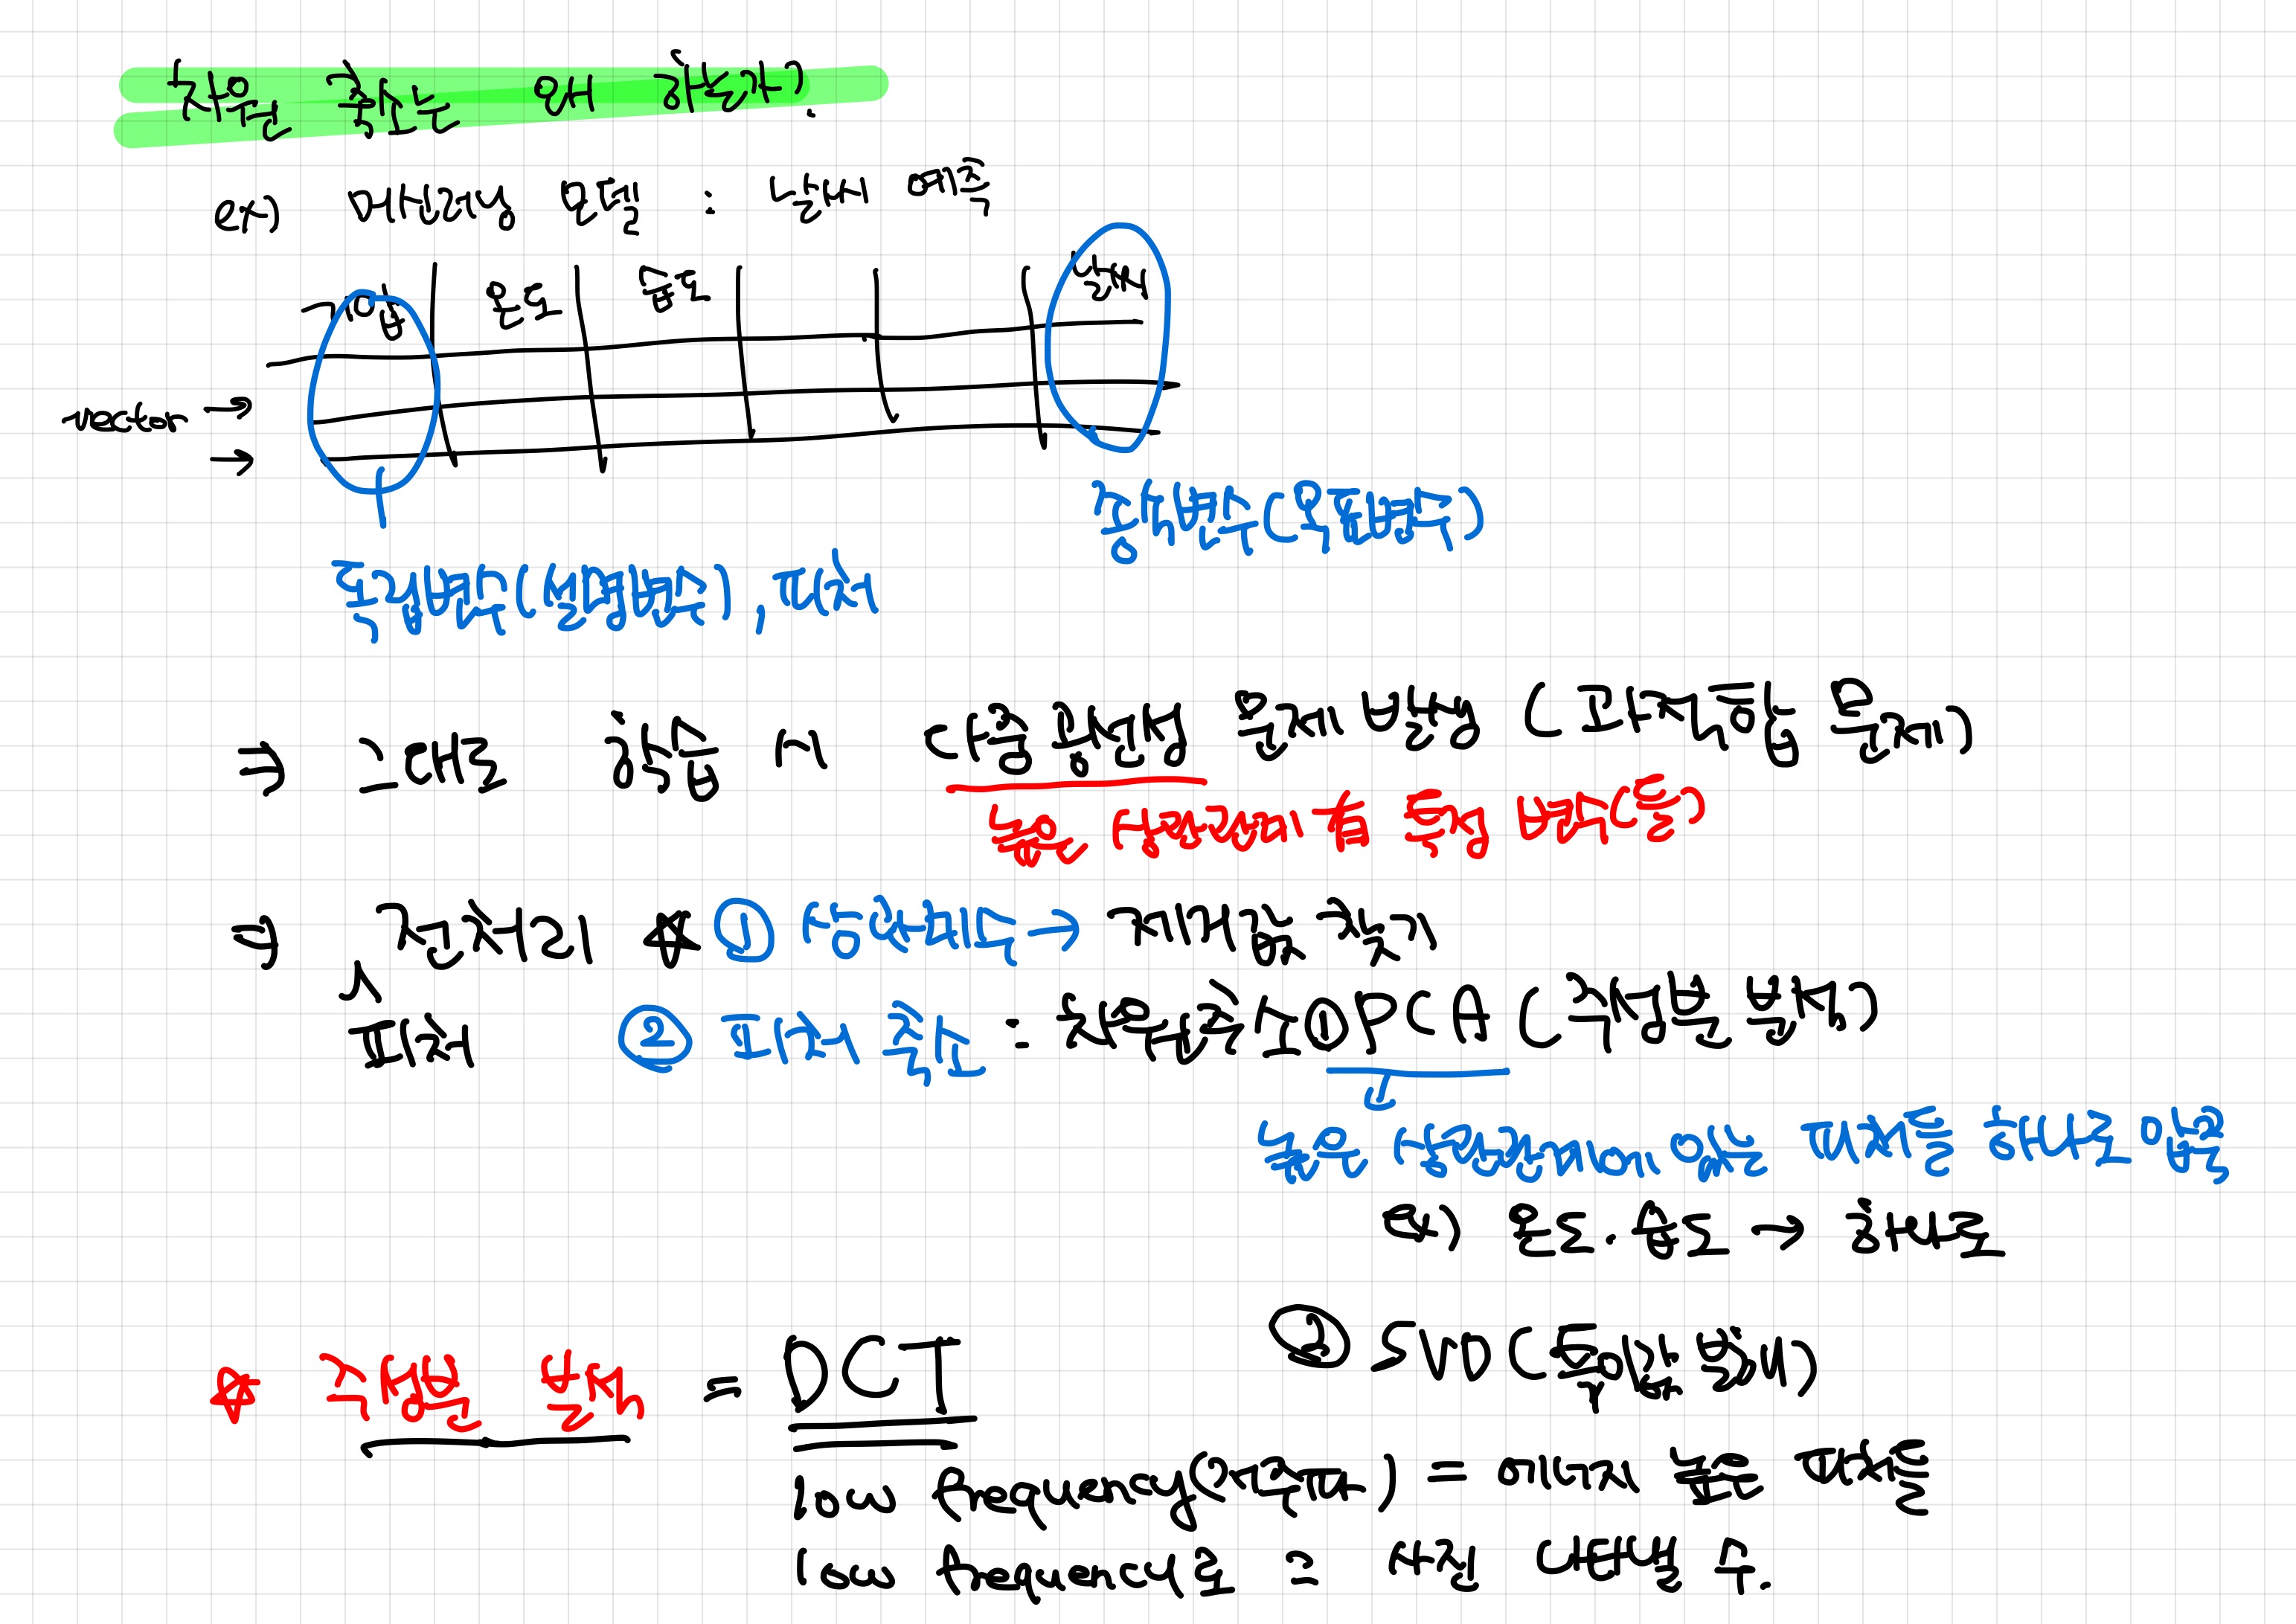 차원 축소는 왜 하는가?
ex) 머신러닝 모델 : 날씨 예측
기압 온도 습도 날씨
vector →
→
종속변수(목표변수)
독립변수(설명변수), 피처
⇒ 그대로 학습 시 다중공선성 문제 발생 (과적합 문제)
높은 상관관계 有 특성 변수(들)
⇒ 전처리 ☆ ① 상관계수 → 제거 중 찾기
피처 ② 피처 축소 : 차원 축소 ① PCA (주성분 분석)
높은 상관관계에 있는 피처들 하나로 압축
ex) 온도.습도 → 하나로
② SVD(특이값 분해)
☆ 주성분 분석 = DCT
low frequency(저주파) = 에너지 높은 피처들
low frequency로 = 사진 나타낼 수.